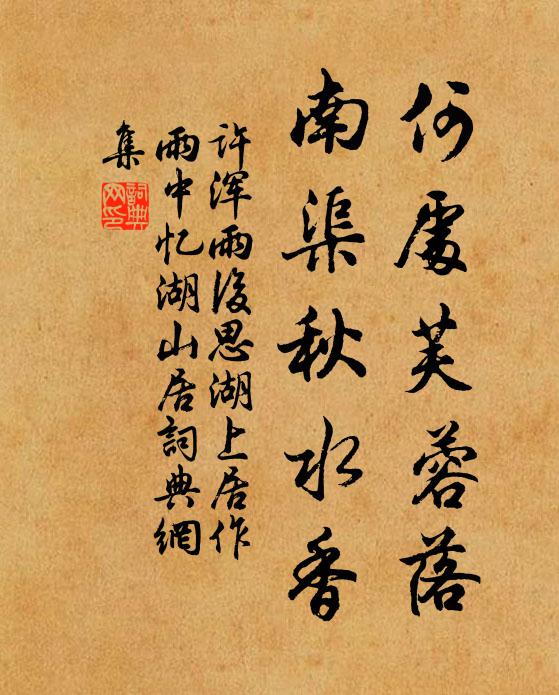 何處芙蓉落
南渠秋水香
许渾雨後思湖上居作
雨中忆湖山居詞典網
集
詞典網印